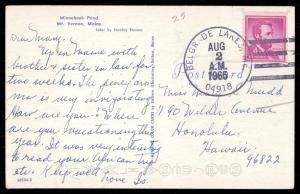 Minnehonk Pond
Mt. Vernon, Maine
Color by Stanley Thomas
25
Dear Mary,
Up in Maine with
brother & sister in law for
two weeks. The piney aro-
ma is very invigorating.
How are you? Where
are you vacationing this
year. It was very interesting
to read your African
Keep well
BELGRADE LAKES
AUG
2
A.M.
1965
04918
Post Card
Miss
190 Wilder Avenue
Honolulu
Hawaii
96822